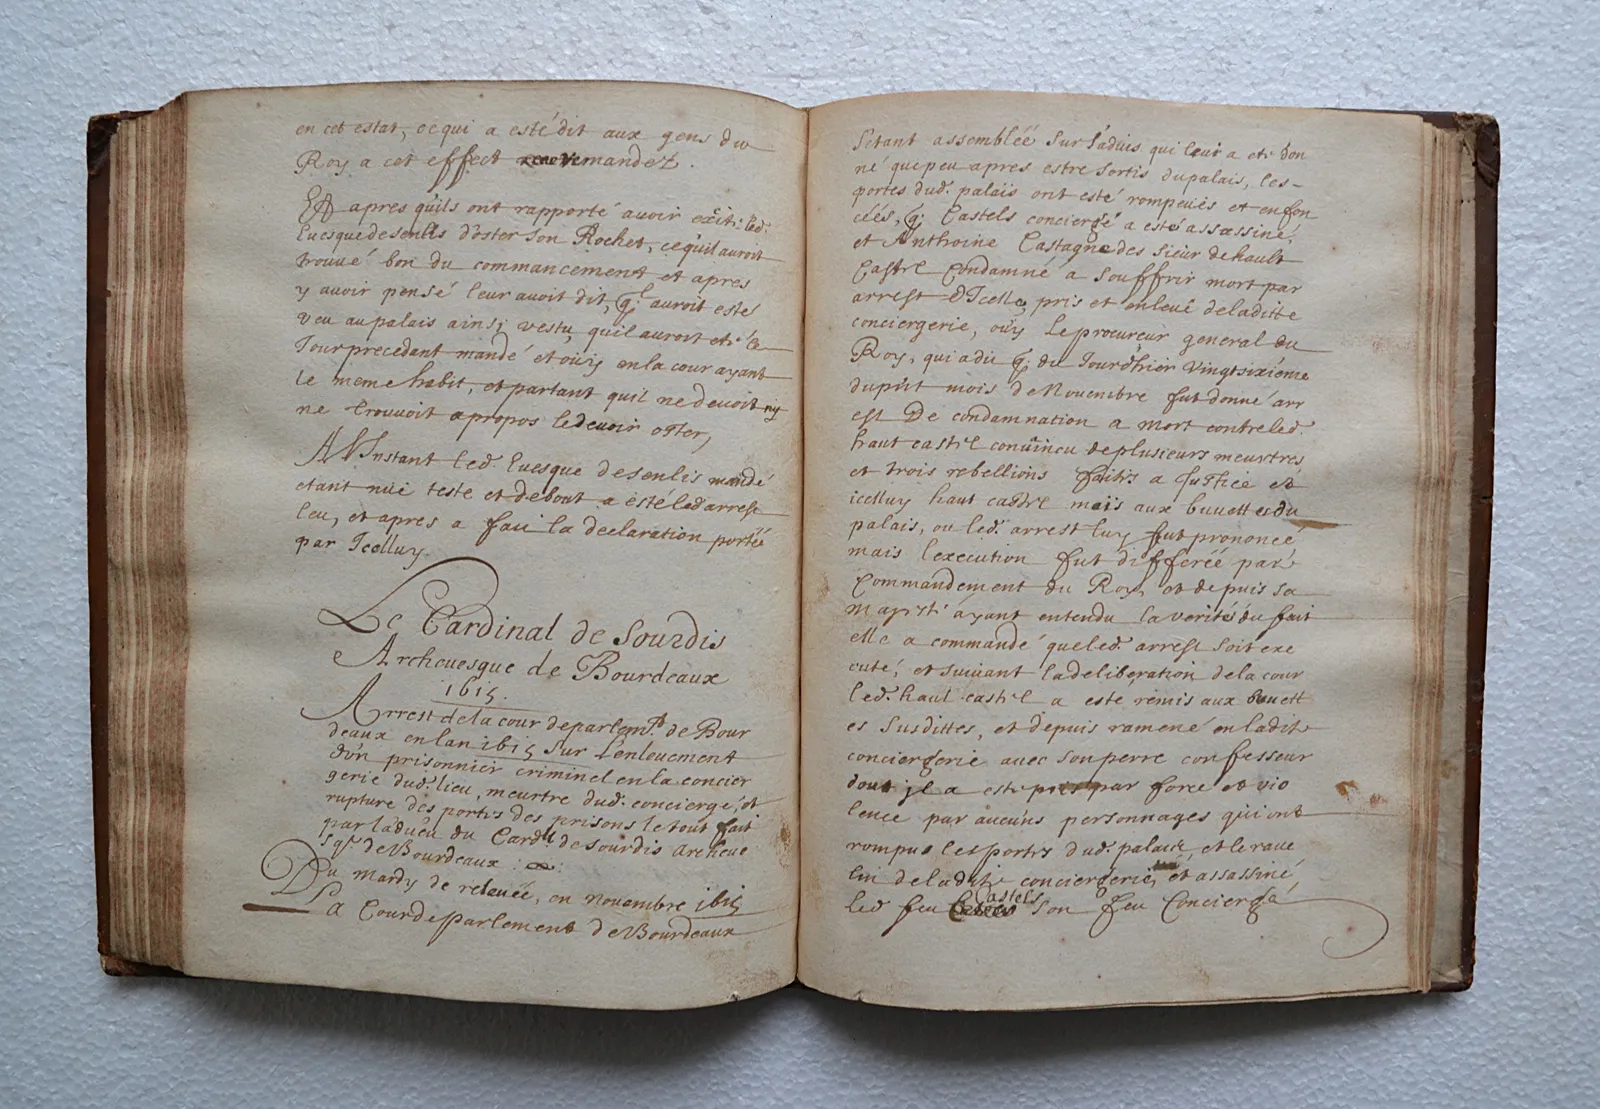 en cet estat, ce qui a esté dit aux gens du
Roy a cet effect mandez.
Et apres quils ont rapporté avoir exĉité led.
Euesque de senlis d'oster son Rochet, ce quil auroit
trouué bon du commancement et apres
y avoir pensé leur avoit dit, q; auroit esté
veu au palais ainsi vestu, quil auroit eté le
Jour precedant mandé et oüy en la cour ayant
le meme habit, et partant quil ne devoit ny
ne trouvoit apropos le devoir oster,
A l'Instant led. Euesque de senlis mandé
etant nüe teste et debout a esté led arrest
leu, et apres a fait la declaration portée
par Icelluy.
Le Cardinal de Sourdis
Archeuesque de Bourdeaux
1615.
Arrest de la cour de parlemt. de Bour
deaux en lan 1615 sur L'enleuement
d'un prisonnier criminel en la concier
gerie dud. lieu, meurtre dud. concierge, et
rupture des portes des prisons le tout fait
par l'adueu du Cardl. de sourdis Archeue
sq. de Bourdeaux
Du mardy de releuée, en novembre 1615
La Cour de Parlement de Bourdeaux
s'etant assembléé sur l'aduis qui leur a eté don
né que peu apres estre sortis du palais, les
portes dud. palais ont esté rompeües et enfon
cées, q; Castels concierge a esté assassiné,
et Anthoine Castagne des sieur de hault
Castel Condamné a souffrir mort par
arrest d'Icelle, pris et enleué de laditte
conciergerie, oüy Le procureur general du
Roy, qui a dit q; du Jourdhier vingt sixiéme
du pñt mois de Novembre fut donné arr
est De condamnation a mort contre led.
haut castel convaincu de plusieurs meurtres
et trois rebellions faites a Justice et
icelluy haut castel mais aux buuettes du
palais, ou led. arrest luy fut prononcé
mais l'execution fut differéé par
Commandement du Roy, et depuis sa
Majesté ayant entendu la verité du fait
elle a commandé que led. arrest soit exe
cuté, et suiuant la deliberation de la cour
led. haut castel a esté remis aux buuett
es susdittes, et depuis ramené en ladite
conciergerie avec son perre confesseur
dout il a esté pris par force et vio
lence par aucuns personnages qui ont
rompu les portes dud. palais, et le raue
lin de ladite conciergerie, et assassiné
led. feu Castels son feu Concierge